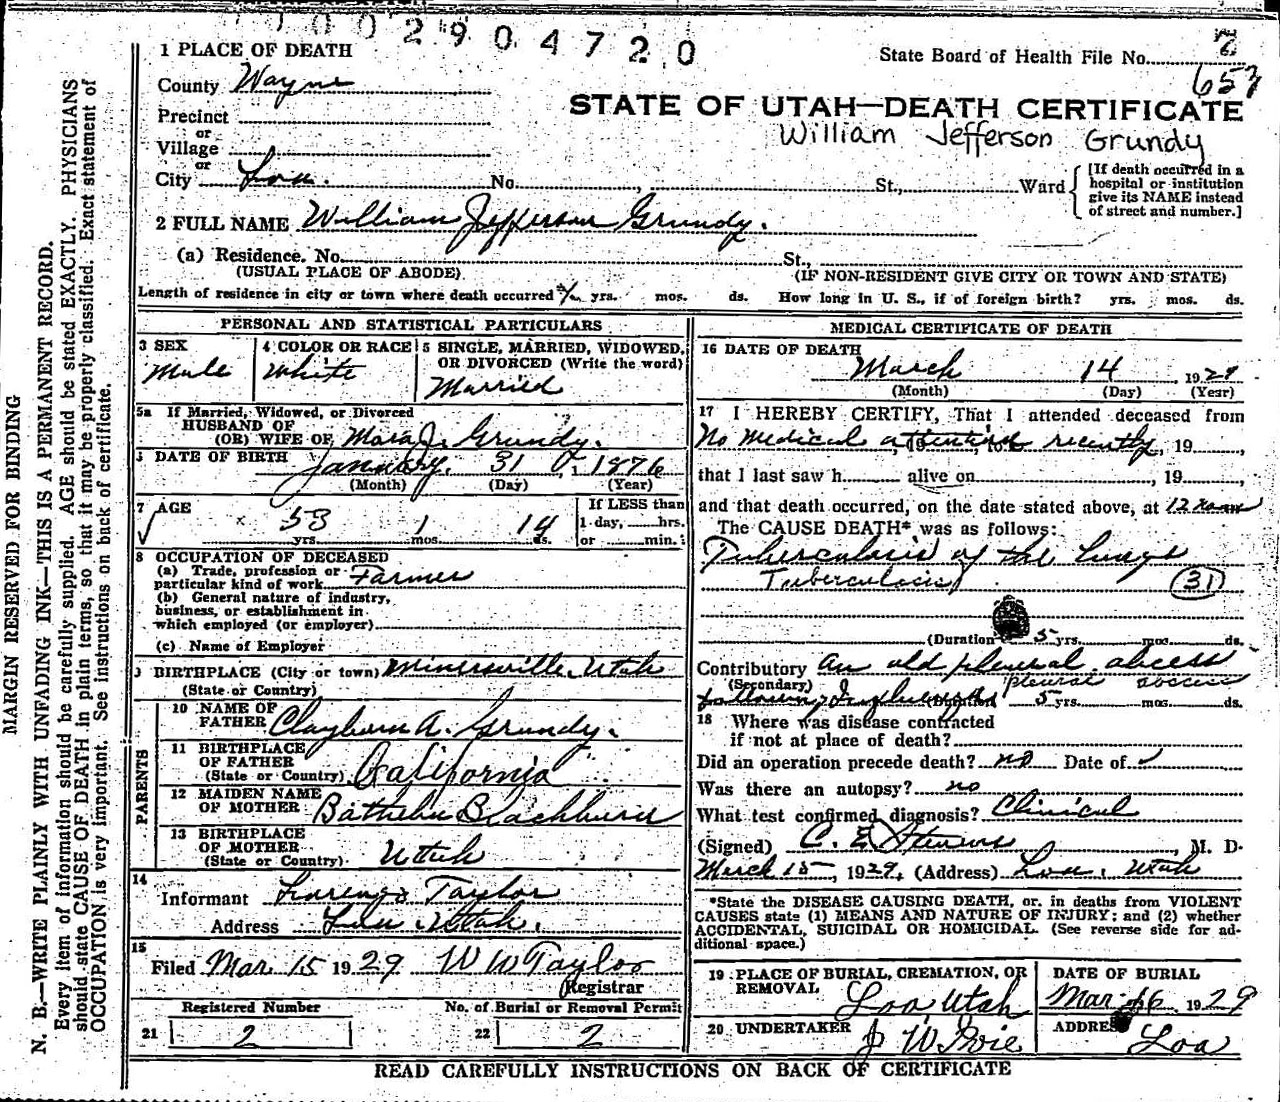 002904720
1 PLACE OF DEATH
State Board of Health File No. 7
653
County Wayne
STATE OF UTAH—DEATH CERTIFICATE
Precinct
William Jefferson Grundy
or
Village
or
City Loa. No. , St., Ward
[If death occurred in a hospital or institution give its NAME instead of street and number.]
2 FULL NAME William Jefferson Grundy.
(a) Residence. No. St.,
(USUAL PLACE OF ABODE) (IF NON-RESIDENT GIVE CITY OR TOWN AND STATE)
Length of residence in city or town where death occurred yrs. mos. ds. How long in U. S., if of foreign birth? yrs. mos. ds.
PERSONAL AND STATISTICAL PARTICULARS
3 SEX 4 COLOR OR RACE 5 SINGLE, MARRIED, WIDOWED, OR DIVORCED (Write the word)
Male White Married
5a If Married, Widowed, or Divorced
HUSBAND OF
(OR) WIFE OF Mara J. Grundy.
6 DATE OF BIRTH January 31, 1876
(Month) (Day) (Year)
7 AGE 53 yrs. 1 mos. 14 ds.
If LESS than
1 day, hrs.
or min.
8 OCCUPATION OF DECEASED
(a) Trade, profession or
particular kind of work Farmer
(b) General nature of industry,
business, or establishment in
which employed (or employer)
(c) Name of Employer
9 BIRTHPLACE (City or town) Minersville, Utah
(State or Country)
PARENTS
10 NAME OF
FATHER Clayburn A. Grundy.
11 BIRTHPLACE
OF FATHER
(State or Country) California
12 MAIDEN NAME
OF MOTHER Blackburn
13 BIRTHPLACE
OF MOTHER
(State or Country) Utah
14
Informant Lorenzo Taylor
Address Loa, Utah.
15
Filed Mar 15 1929 W W Taylor
Registrar
Registered Number No. of Burial or Removal Permit
21 2 22 2
MEDICAL CERTIFICATE OF DEATH
16 DATE OF DEATH
March 14, 1929
(Month) (Day) (Year)
17 I HEREBY CERTIFY, That I attended deceased from
No medical attention recently, 19
that I last saw h alive on , 19
and that death occurred, on the date stated above, at 12
The CAUSE DEATH* was as follows:
Tuberculosis of the lungs
Tuberculosis (31)
(Duration 5 yrs. mos. ds.
Contributory An old pleural abcess
(Secondary) pleural abscess
following Influenza (Duration 5 yrs. mos. ds.
18 Where was disease contracted
if not at place of death?
Did an operation precede death? no Date of
Was there an autopsy? no
What test confirmed diagnosis? Clinical
(Signed) C. E. Stevens, M. D.
March 15, 1929, (Address) Loa, Utah
*State the DISEASE CAUSING DEATH, or, in deaths from VIOLENT
CAUSES state (1) MEANS AND NATURE OF INJURY; and (2) whether
ACCIDENTAL, SUICIDAL OR HOMICIDAL. (See reverse side for ad-
ditional space.)
19 PLACE OF BURIAL, CREMATION, OR REMOVAL DATE OF BURIAL
Loa, Utah Mar 16 1929
20 UNDERTAKER ADDRESS
J W Ivie Loa
READ CAREFULLY INSTRUCTIONS ON BACK OF CERTIFICATE
MARGIN RESERVED FOR BINDING
N. B.—WRITE PLAINLY WITH UNFADING INK—THIS IS A PERMANENT RECORD.
Every item of information should be carefully supplied. AGE should be stated EXACTLY. PHYSICIANS
should state CAUSE OF DEATH in plain terms, so that it may be properly classified. Exact statement of
OCCUPATION is very important. See instructions on back of certificate.